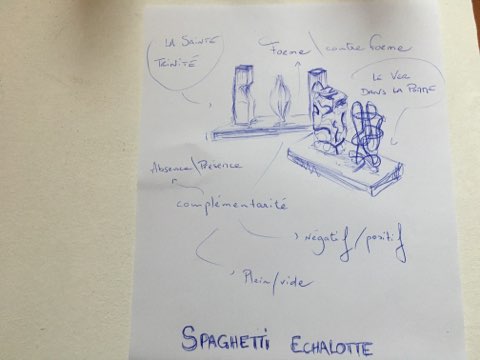 LA SAINTE
TRINITÉ
Forme \ contre forme
LE VER
DANS LA POMME
Absence/Présence
complémentarité
négatif/positif
Plein/vide
SPAGHETTI ECHALOTTE